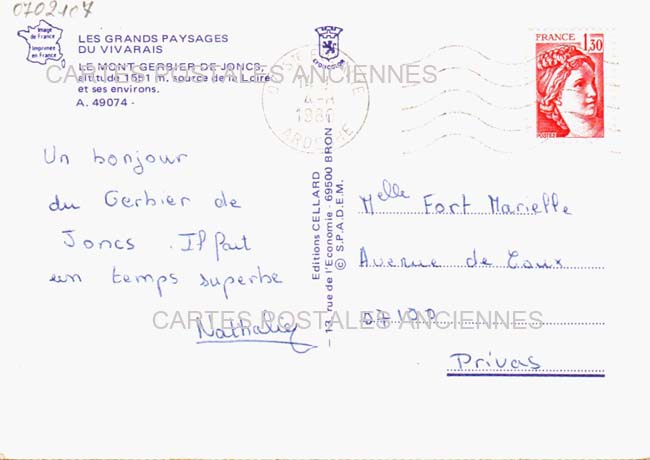 0702107
Image de France
Imprimée en France
LES GRANDS PAYSAGES
DU VIVARAIS
LE MONT GERBIER DE JONCS,
altitude 1551 m. source de la Loire
et ses environs.
A. 49074 -
CARTES POSTALES ANCIENNES
1980
ARDECHE
FRANCE
1,30
POSTES
Un bonjour
du Gerbier de
Joncs . Il fait
un temps superbe
Nathalie
CARTES POSTALES ANCIENNES
Editions CELLARD
- 13, rue de l'Economie - 69500 BRON
© S.P.A.D.E.M.
Melle Fort Marielle
Avenue de Coux
07100
Privas